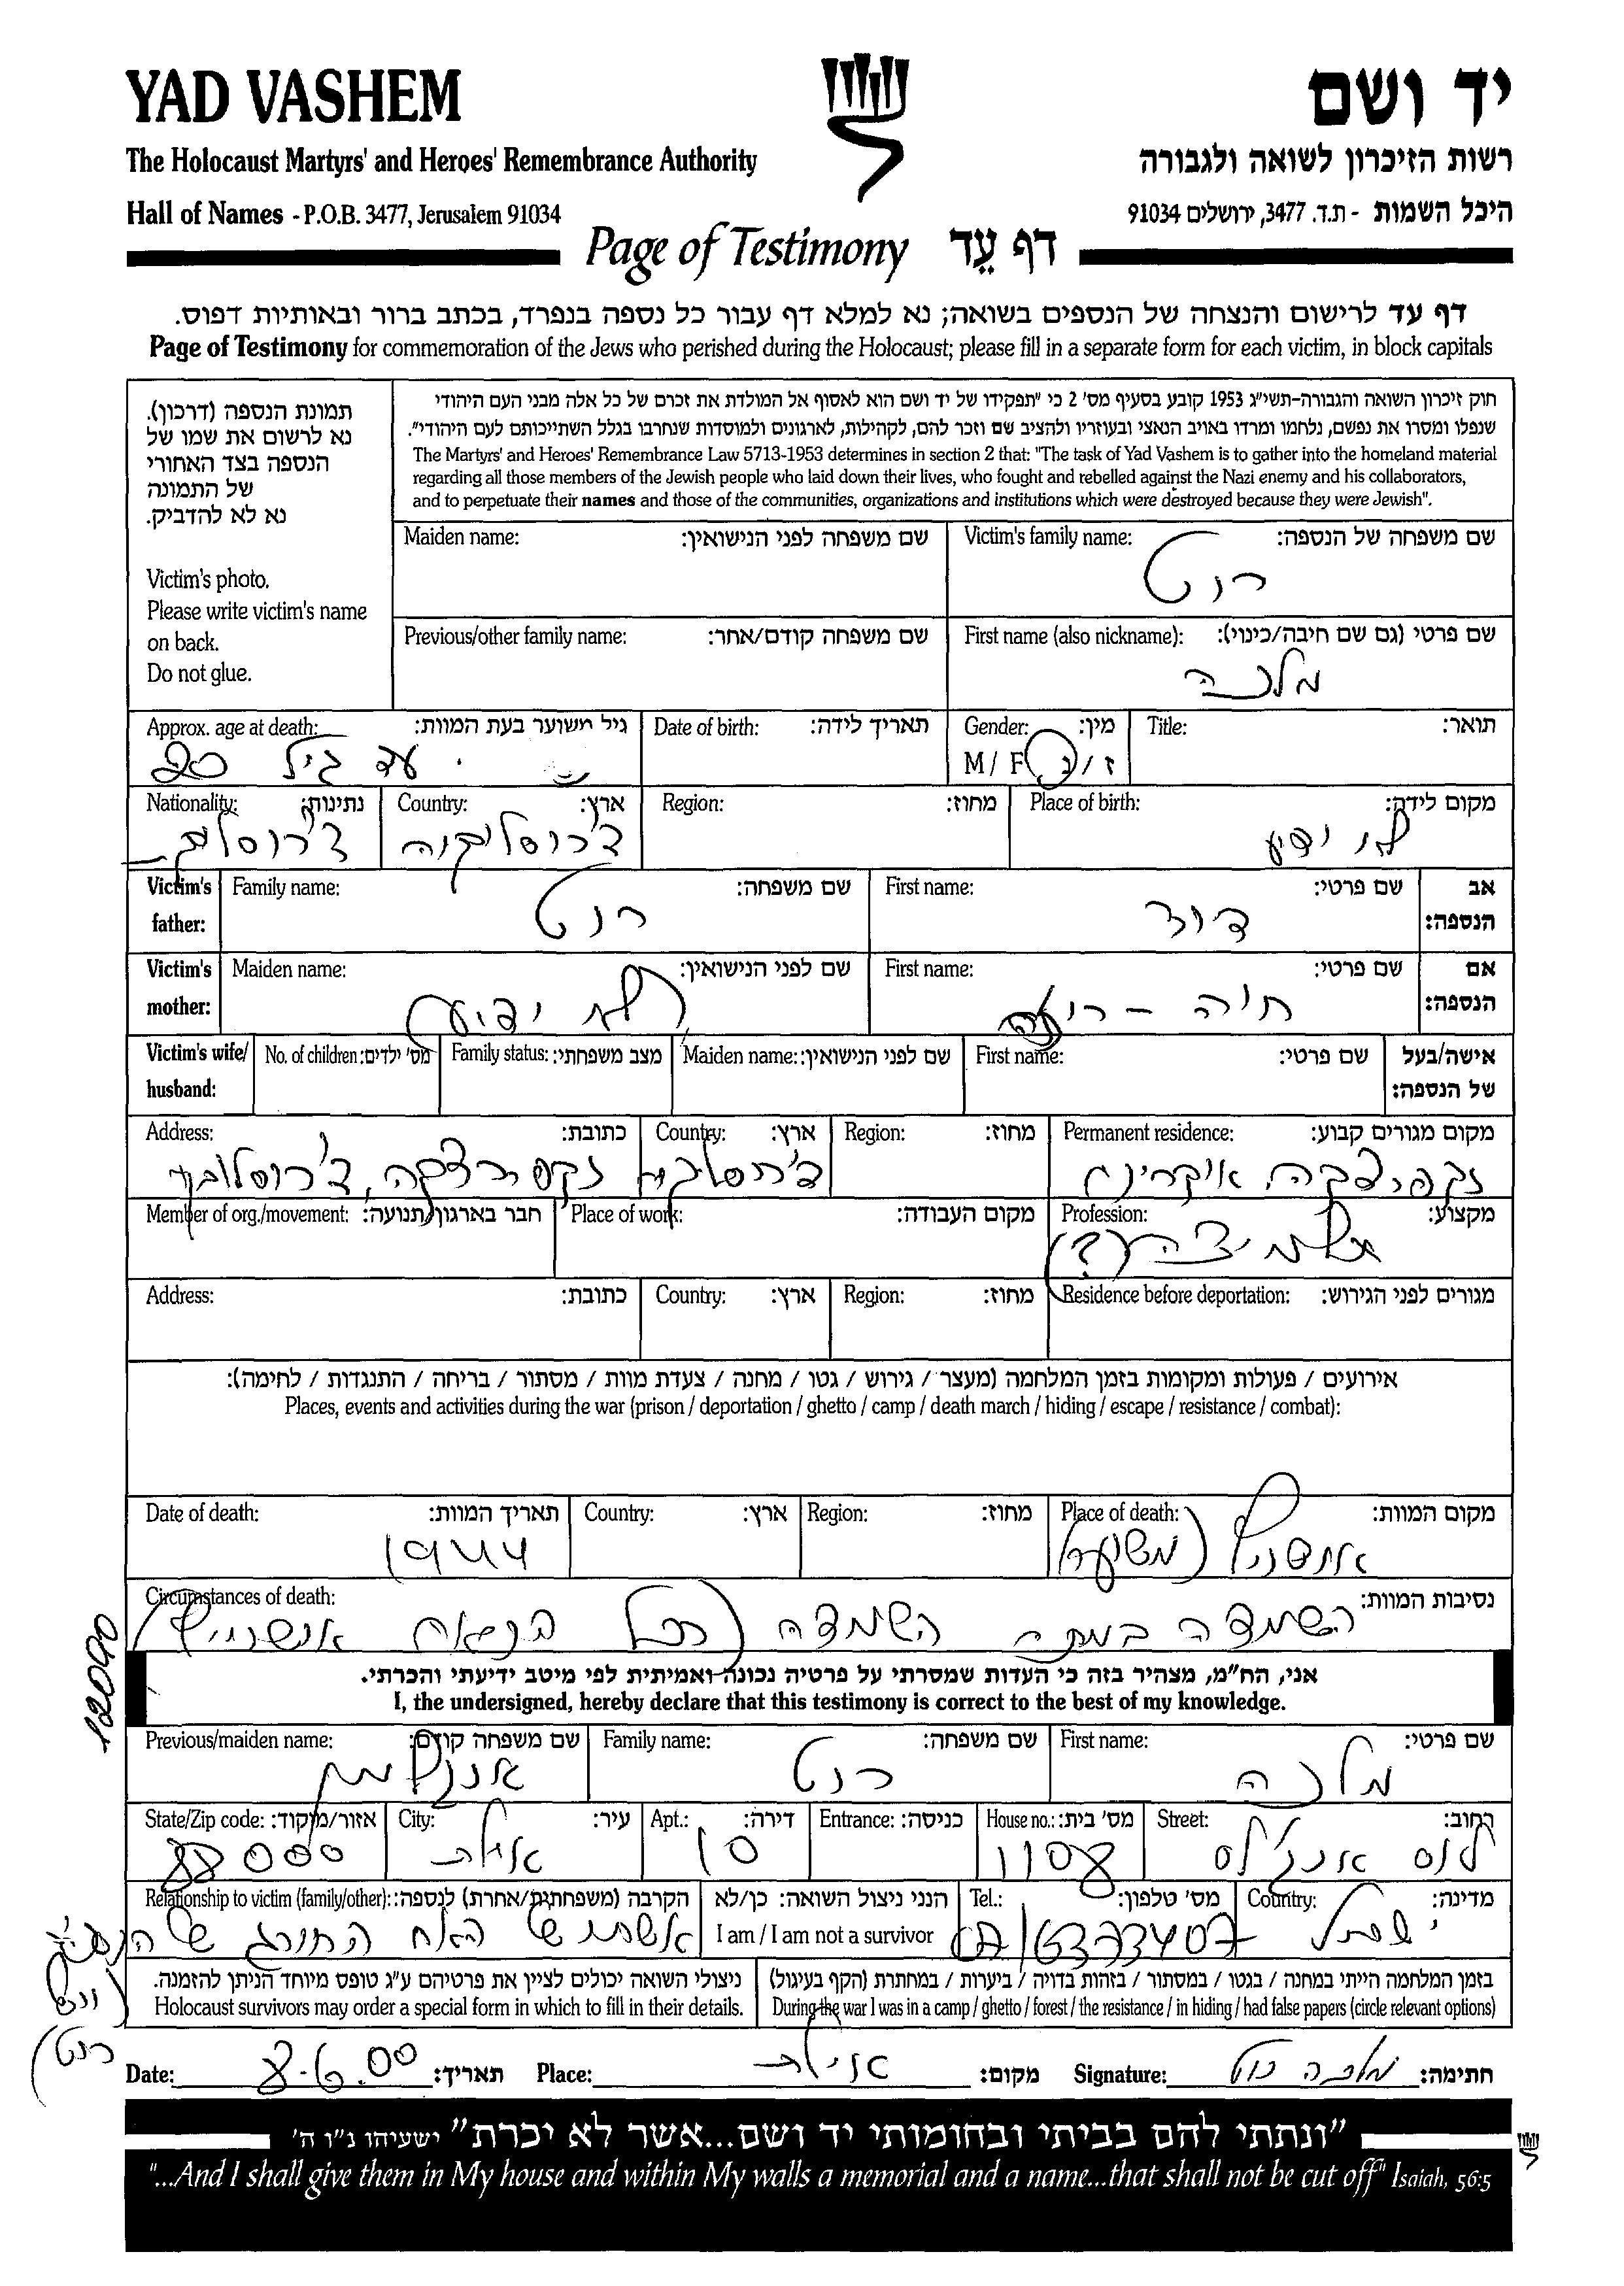 YAD VASHEM
יד ושם
The Holocaust Martyrs' and Heroes' Remembrance Authority
רשות הזיכרון לשואה ולגבורה
Hall of Names - P.O.B. 3477, Jerusalem 91034
היכל השמות - ת.ד. 3477, ירושלים 91034
Page of Testimony דף עֵד
דף עד לרישום והנצחה של הנספים בשואה; נא למלא דף עבור כל נספה בנפרד, בכתב ברור ובאותיות דפוס.
Page of Testimony for commemoration of the Jews who perished during the Holocaust; please fill in a separate form for each victim, in block capitals
תמונת הנספה (דרכון).
נא לרשום את שמו של
הנספה בצד האחורי
של התמונה
נא לא להדביק.
Victim's photo.
Please write victim's name
on back.
Do not glue.
חוק זיכרון השואה והגבורה-תשי"ג 1953 קובע בסעיף מס' 2 כי "תפקידו של יד ושם הוא לאסוף אל המולדת את זכרם של כל אלה מבני העם היהודי
שנפלו ומסרו את נפשם, נלחמו ומרדו באויב הנאצי ובעוזריו ולהציב שם וזכר להם, לקהילות, לארגונים ולמוסדות שנחרבו בגלל השתייכותם לעם היהודי".
The Martyrs' and Heroes' Remembrance Law 5713-1953 determines in section 2 that: "The task of Yad Vashem is to gather into the homeland material
regarding all those members of the Jewish people who laid down their lives, who fought and rebelled against the Nazi enemy and his collaborators,
and to perpetuate their names and those of the communities, organizations and institutions which were destroyed because they were Jewish".
Victim's family name: שם משפחה של הנספה:
רוט
Maiden name: שם משפחה לפני הנישואין:
First name (also nickname): שם פרטי (גם שם חיבה/כינוי):
מלכה
Previous/other family name: שם משפחה קודם/אחר:
Title: תואר:
Gender: מין:
M / F ז / נ
Date of birth: תאריך לידה:
Approx. age at death: גיל משוער בעת המוות:
עד גיל 20
Place of birth: מקום לידה:
לא ידוע
Region: מחוז:
Country: ארץ:
צ'כוסלובקיה
Nationality: נתינות:
Victim's father: אב הנספה:
First name: שם פרטי:
דוד
Family name: שם משפחה:
רוט
Victim's mother: אם הנספה:
First name: שם פרטי:
חיה -
Maiden name: שם לפני הנישואין:
(לא ידוע)
Victim's wife/ husband: אישה/בעל של הנספה:
First name: שם פרטי:
Maiden name: שם לפני הנישואין:
Family status: מצב משפחתי:
No. of children: מס' ילדים:
Permanent residence: מקום מגורים קבוע:
Region: מחוז:
Country: ארץ:
Address: כתובת:
Profession: מקצוע:
תלמידה (?)
Place of work: מקום העבודה:
Member of org./movement: חבר בארגון/תנועה:
Residence before deportation: מגורים לפני הגירוש:
Region: מחוז:
Country: ארץ:
Address: כתובת:
אירועים / פעולות ומקומות בזמן המלחמה (מעצר / גירוש / גטו / מחנה / צעדת מוות / מסתור / בריחה / התנגדות / לחימה):
Places, events and activities during the war (prison / deportation / ghetto / camp / death march / hiding / escape / resistance / combat):
Place of death: מקום המוות:
אושוויץ (משוער)
Region: מחוז:
Country: ארץ:
Date of death: תאריך המוות:
1944
Circumstances of death: נסיבות המוות:
השמדה במחנה השמדה (ככל הנראה אושוויץ)
12090
אני, הח"מ, מצהיר בזה כי העדות שמסרתי על פרטיה נכונה ואמיתית לפי מיטב ידיעתי והכרתי.
I, the undersigned, hereby declare that this testimony is correct to the best of my knowledge.
First name: שם פרטי:
מלכה
Family name: שם משפחה:
רוט
Previous/maiden name: שם משפחה קודם:
Street: רחוב:
לוס אנג'לס
House no.: מס' בית:
Entrance: כניסה:
Apt.: דירה:
10
City: עיר:
אילת
State/Zip code: אזור/מיקוד:
88000
Country: מדינה:
ישראל
Tel.: מס' טלפון:
I am / I am not a survivor הנני ניצול השואה: כן/לא
Relationship to victim (family/other): הקרבה (משפחתית/אחרת) לנספה:
אשתו של האח החורג של הנספית
רוט)
בזמן המלחמה הייתי במחנה / בגטו / במסתור / בזהות בדויה / ביערות / במחתרת (הקף בעיגול)
During the war I was in a camp / ghetto / forest / the resistance / in hiding / had false papers (circle relevant options)
ניצולי השואה יכולים לציין את פרטיהם ע"ג טופס מיוחד הניתן להזמנה.
Holocaust survivors may order a special form in which to fill in their details.
Date: 8.6.00 תאריך: Place: אילת מקום: Signature: מלכה רוט חתימה:
"ונתתי להם בביתי ובחומותי יד ושם...אשר לא יכרת" ישעיהו נ"ו ה'
"...And I shall give them in My house and within My walls a memorial and a name...that shall not be cut off" Isaiah, 56:5